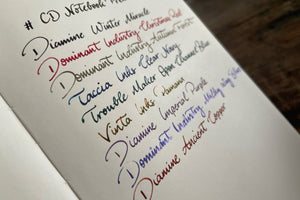 # CD Notebook
Diamine Winter Miracle
Dominant Industry Christmas Red
Dominant Industry Autumn Forest
Taccia Inks Clear Navy
Trouble Maker Epon Channel Blue
Vinta Inks
Diamine Imperial Purple
Dominant Industry Milky Way
Diamine Ancient Copper